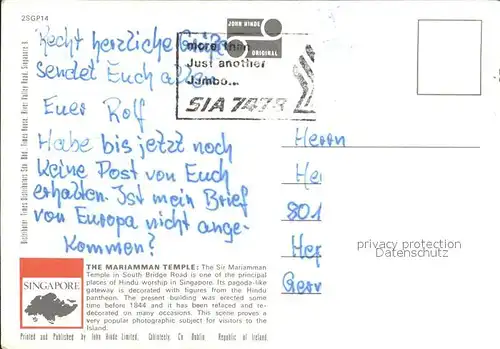 2SGP14
JOHN HINDE
ORIGINAL
more than
Just another
Jumbo...
SIA 747B
Recht herzliche Grüße
sendet Euch allen
Euer Rolf
Habe bis jetzt noch
keine Post von Euch
erhalten. Ist mein Brief
von Europa nicht ange-
kommen?
Herrn
Her
801
Her
Germ
privacy protection
Oldthing
Distributor: Times Distributors Sdn. Bhd. Times House, River Valley Road, Singapore 9.
SINGAPORE
THE MARIAMMAN TEMPLE: The Sir Mariamman
Temple in South Bridge Road is one of the principal
places of Hindu worship in Singapore. Its pagoda-like
gateway is decorated with figures from the Hindu
pantheon. The present building was erected some
time before 1844 and it has been refaced and re-
decorated on many occasions. This scene proves a
very popular photographic subject for visitors to the
Island.
Printed and Published by John Hinde Limited, Cabinteely, Co Dublin, Republic of Ireland.